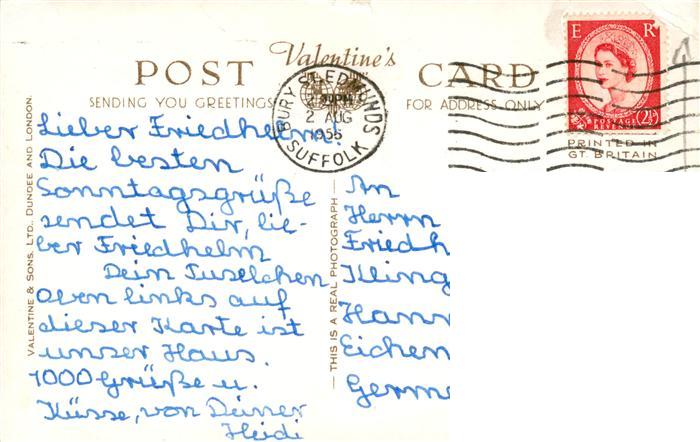 Valentine's
POST CARD
SENDING YOU GREETINGS
FOR ADDRESS ONLY
BURY ST. EDMUNDS
2 AUG
1955
SUFFOLK
E R
POSTAGE
REVENUE
2½D
PRINTED IN
GT. BRITAIN
VALENTINE & SONS, LTD., DUNDEE AND LONDON.
THIS IS A REAL PHOTOGRAPH
Lieber Friedhelm!
Die besten
Sonntagsgrüße
sendet Dir, lie-
ber Friedhelm
Dein Tuselchen
Oben links auf
dieser Karte ist
unser Haus.
1000 Grüße u.
Küsse, von Deiner
Heidi
An
Herrn
Friedh
Kling
Hann
Eichen
Germ